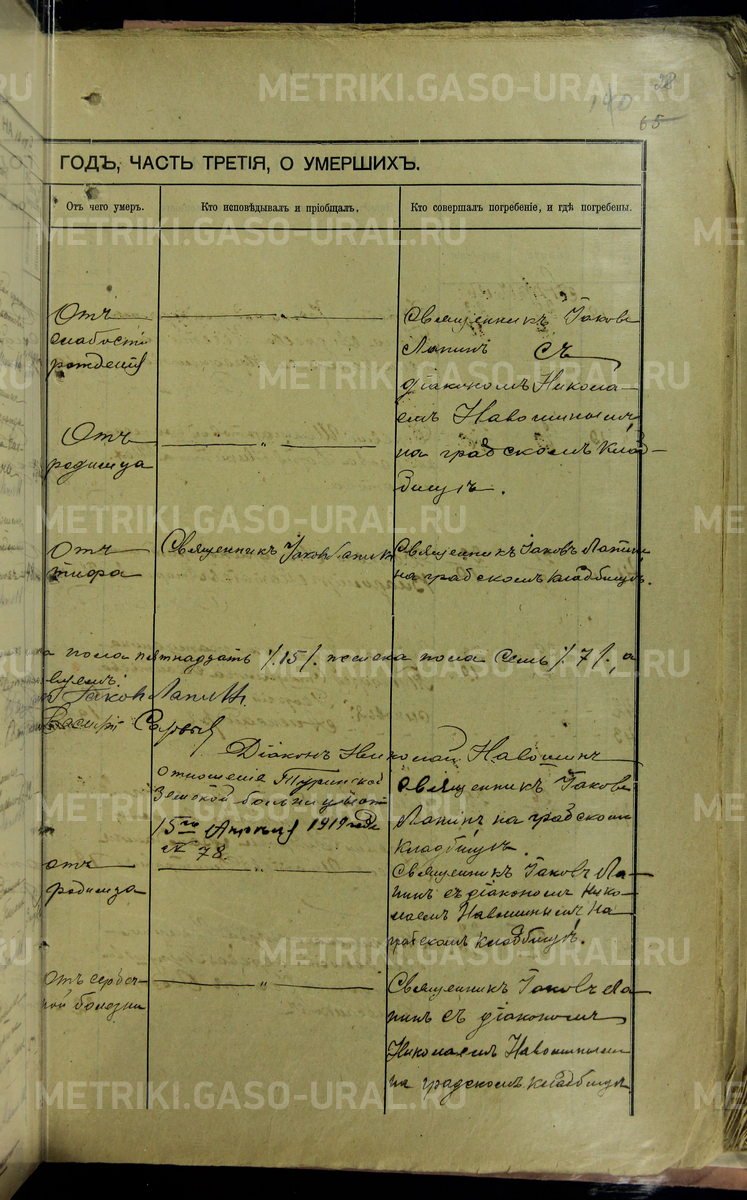 METRIKI.GASO-URAL.RU
28
140
65
ГОДЪ, ЧАСТЬ ТРЕТІЯ, О УМЕРШИХЪ.
Отъ чего умеръ.
Кто исповѣдывалъ и пріобщалъ.
Кто совершалъ погребеніе, и гдѣ погребены.
Отъ
слабости
рожденія
Священникъ Іаковъ
Лапинъ съ
діакономъ Никола-
емъ Навошинымъ
на градскомъ клад-
бищѣ.
Отъ
родимца
Отъ
тифа
Священникъ Іаковъ Лапинъ
Священникъ Іаковъ Лапинъ
на градскомъ кладбищѣ.
а пола пятнадцать /15/. женска пола семь /7/, а
Іаковъ Лапинъ.
Діаконъ Николай Навошинъ
отношеніе Туринской
Земской больницы отъ
15го Апрѣля 1919 года
№ 78.
Священникъ Іаковъ
Лапинъ на градскомъ
кладбищѣ.
отъ
родимца
Священникъ Іаковъ Ла-
пинъ съ діакономъ Нико-
лаемъ Навошинымъ на
градскомъ кладбищѣ.
Отъ сердеч-
ной болезни
Священникъ Іаковъ Ла-
пинъ съ діакономъ
Николаемъ Навошинымъ
на градскомъ кладбищѣ